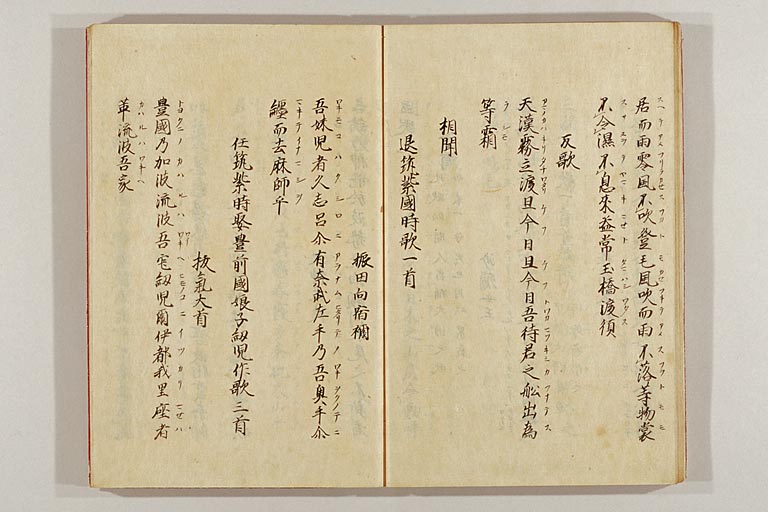 居而雨零風不吹登毛風吹而雨不落等物裳
不令濕不息来益常玉橋渡須
反歌
天漢霧立渡且今日且今日吾待君之舩出為
等霜
相聞
振田向宿祢
退筑紫國時歌一首
吾妹児者久志呂尒有奈武左手乃吾奥手尒
纒而去麻師乎
抜氣大首
任筑紫時娶豊前國娘子紐児作歌三首
豊國乃加波流波吾宅紐児爾伊都我里座者
革流波吾家